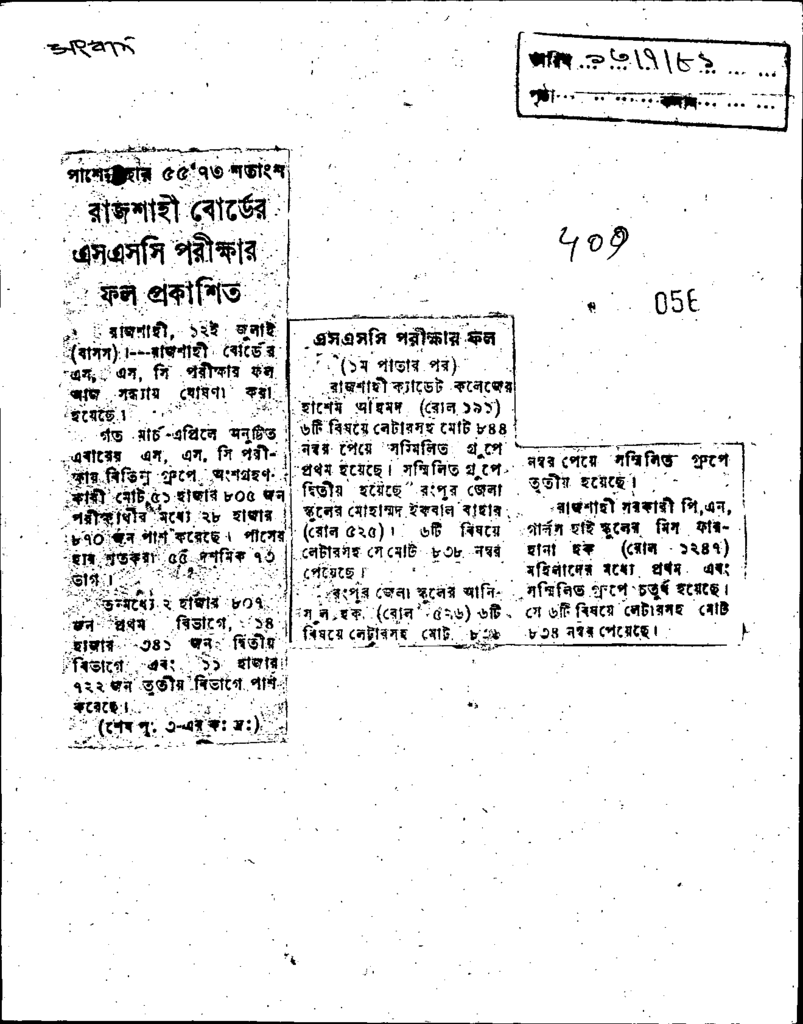 সংবাদ
তারিখ ... ১৩/৭/৮১ ... ...
পৃষ্ঠা... .. ... ... কলাম... ... ...
পাশের হার ৫৫·৭৩ শতাংশ
রাজশাহী বোর্ডের
এসএসসি পরীক্ষার
ফল প্রকাশিত
রাজশাহী, ১২ই জুলাই
(বাসস)।---রাজশাহী বোর্ডের
এস, এস, সি পরীক্ষার ফল
আজ সন্ধ্যায় ঘোষণা করা
হয়েছে।
গত মার্চ-এপ্রিলে অনুষ্ঠিত
এবারের এস, এস, সি পরী-
ক্ষায় বিভিন্ন গ্রুপে অংশগ্রহণ-
কারী মোট ৫১ হাজার ৮০৫ জন
পরীক্ষার্থীর মধ্যে ২৮ হাজার
৮৭০ জন পাশ করেছে। পাসের
হার শতকরা ৫৫ দশমিক ৭৩
ভাগ।
তন্মধ্যে ২ হাজার ৮০৭
জন প্রথম বিভাগে, ১৪
হাজার ৩৪১ জন দ্বিতীয়
বিভাগে এবং ১১ হাজার
৭২২ জন তৃতীয় বিভাগে পাশ
করেছে।
(শেষ পৃ: ৩-এর ক: দ্র:)
৭০৭
056
এসএসসি পরীক্ষার ফল
(১ম পাতার পর)
রাজশাহী ক্যাডেট কলেজের
হাশেম আহমদ (রোল ১৯১)
৬টি বিষয়ে লেটারসহ মোট ৮৪৪
নম্বর পেয়ে সম্মিলিত গ্রুপে
প্রথম হয়েছে। সম্মিলিত গ্রুপে
দ্বিতীয় হয়েছে রংপুর জেলা
স্কুলের মোহাম্মদ ইকবাল বাহার
(রোল ৫২৫)। ৬টি বিষয়ে
লেটারসহ সে মোট ৮৩৮ নম্বর
পেয়েছে।
রংপুর জেলা স্কুলের আনি-
সুল হক (রোল ৫২৬) ৬টি
বিষয়ে লেটারসহ মোট
নম্বর পেয়ে সম্মিলিত গ্রুপে
তৃতীয় হয়েছে।
রাজশাহী সরকারী পি,এন,
গার্লস হাই স্কুলের মিস ফার-
হানা হক (রোল ১২৪৭)
মহিলাদের মধ্যে প্রথম এবং
সম্মিলিত গ্রুপে চতুর্থ হয়েছে।
সে ৬টি বিষয়ে লেটারসহ মোট
৮৩৪ নম্বর পেয়েছে।